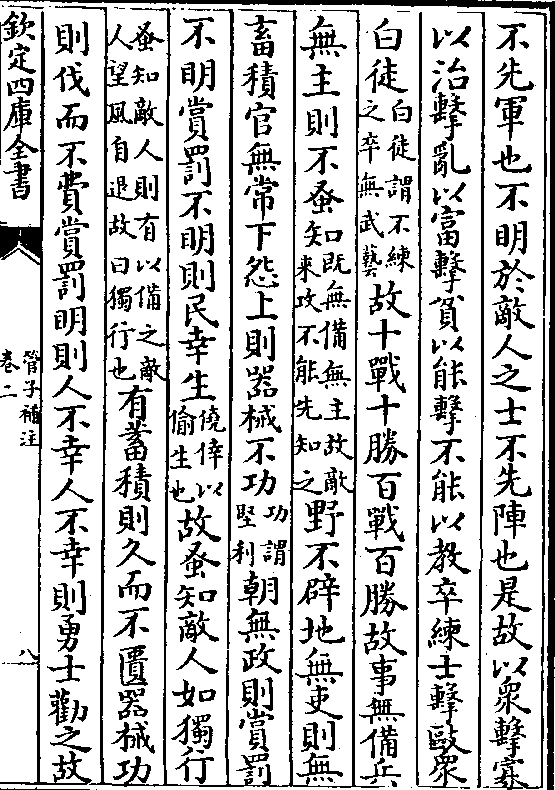 不先軍也不明於敵人之士不先陣也是故以衆擊寡
以治擊亂以富擊貧以能擊不能以教卒練士擊敺衆
白徒白徒謂不練之卒無武藝故十戰十勝百戰百勝故事無備兵
無主則不蚤知既無備無主故敵来攻不能先知之野不辟地無吏則無
畜積官無常下怨上則器械不功功謂堅利朝無政則賞罰
不明賞罰不明則民幸生僥倖以偷生也故蚤知敵人如獨行
蚤知敵人則有以備之敵人望風自退故曰獨行也有蓄積則久而不匱器械功
則伐而不費賞罰明則人不幸人不幸則勇士勸之故
欽定四庫全書
管子補注
卷二
八